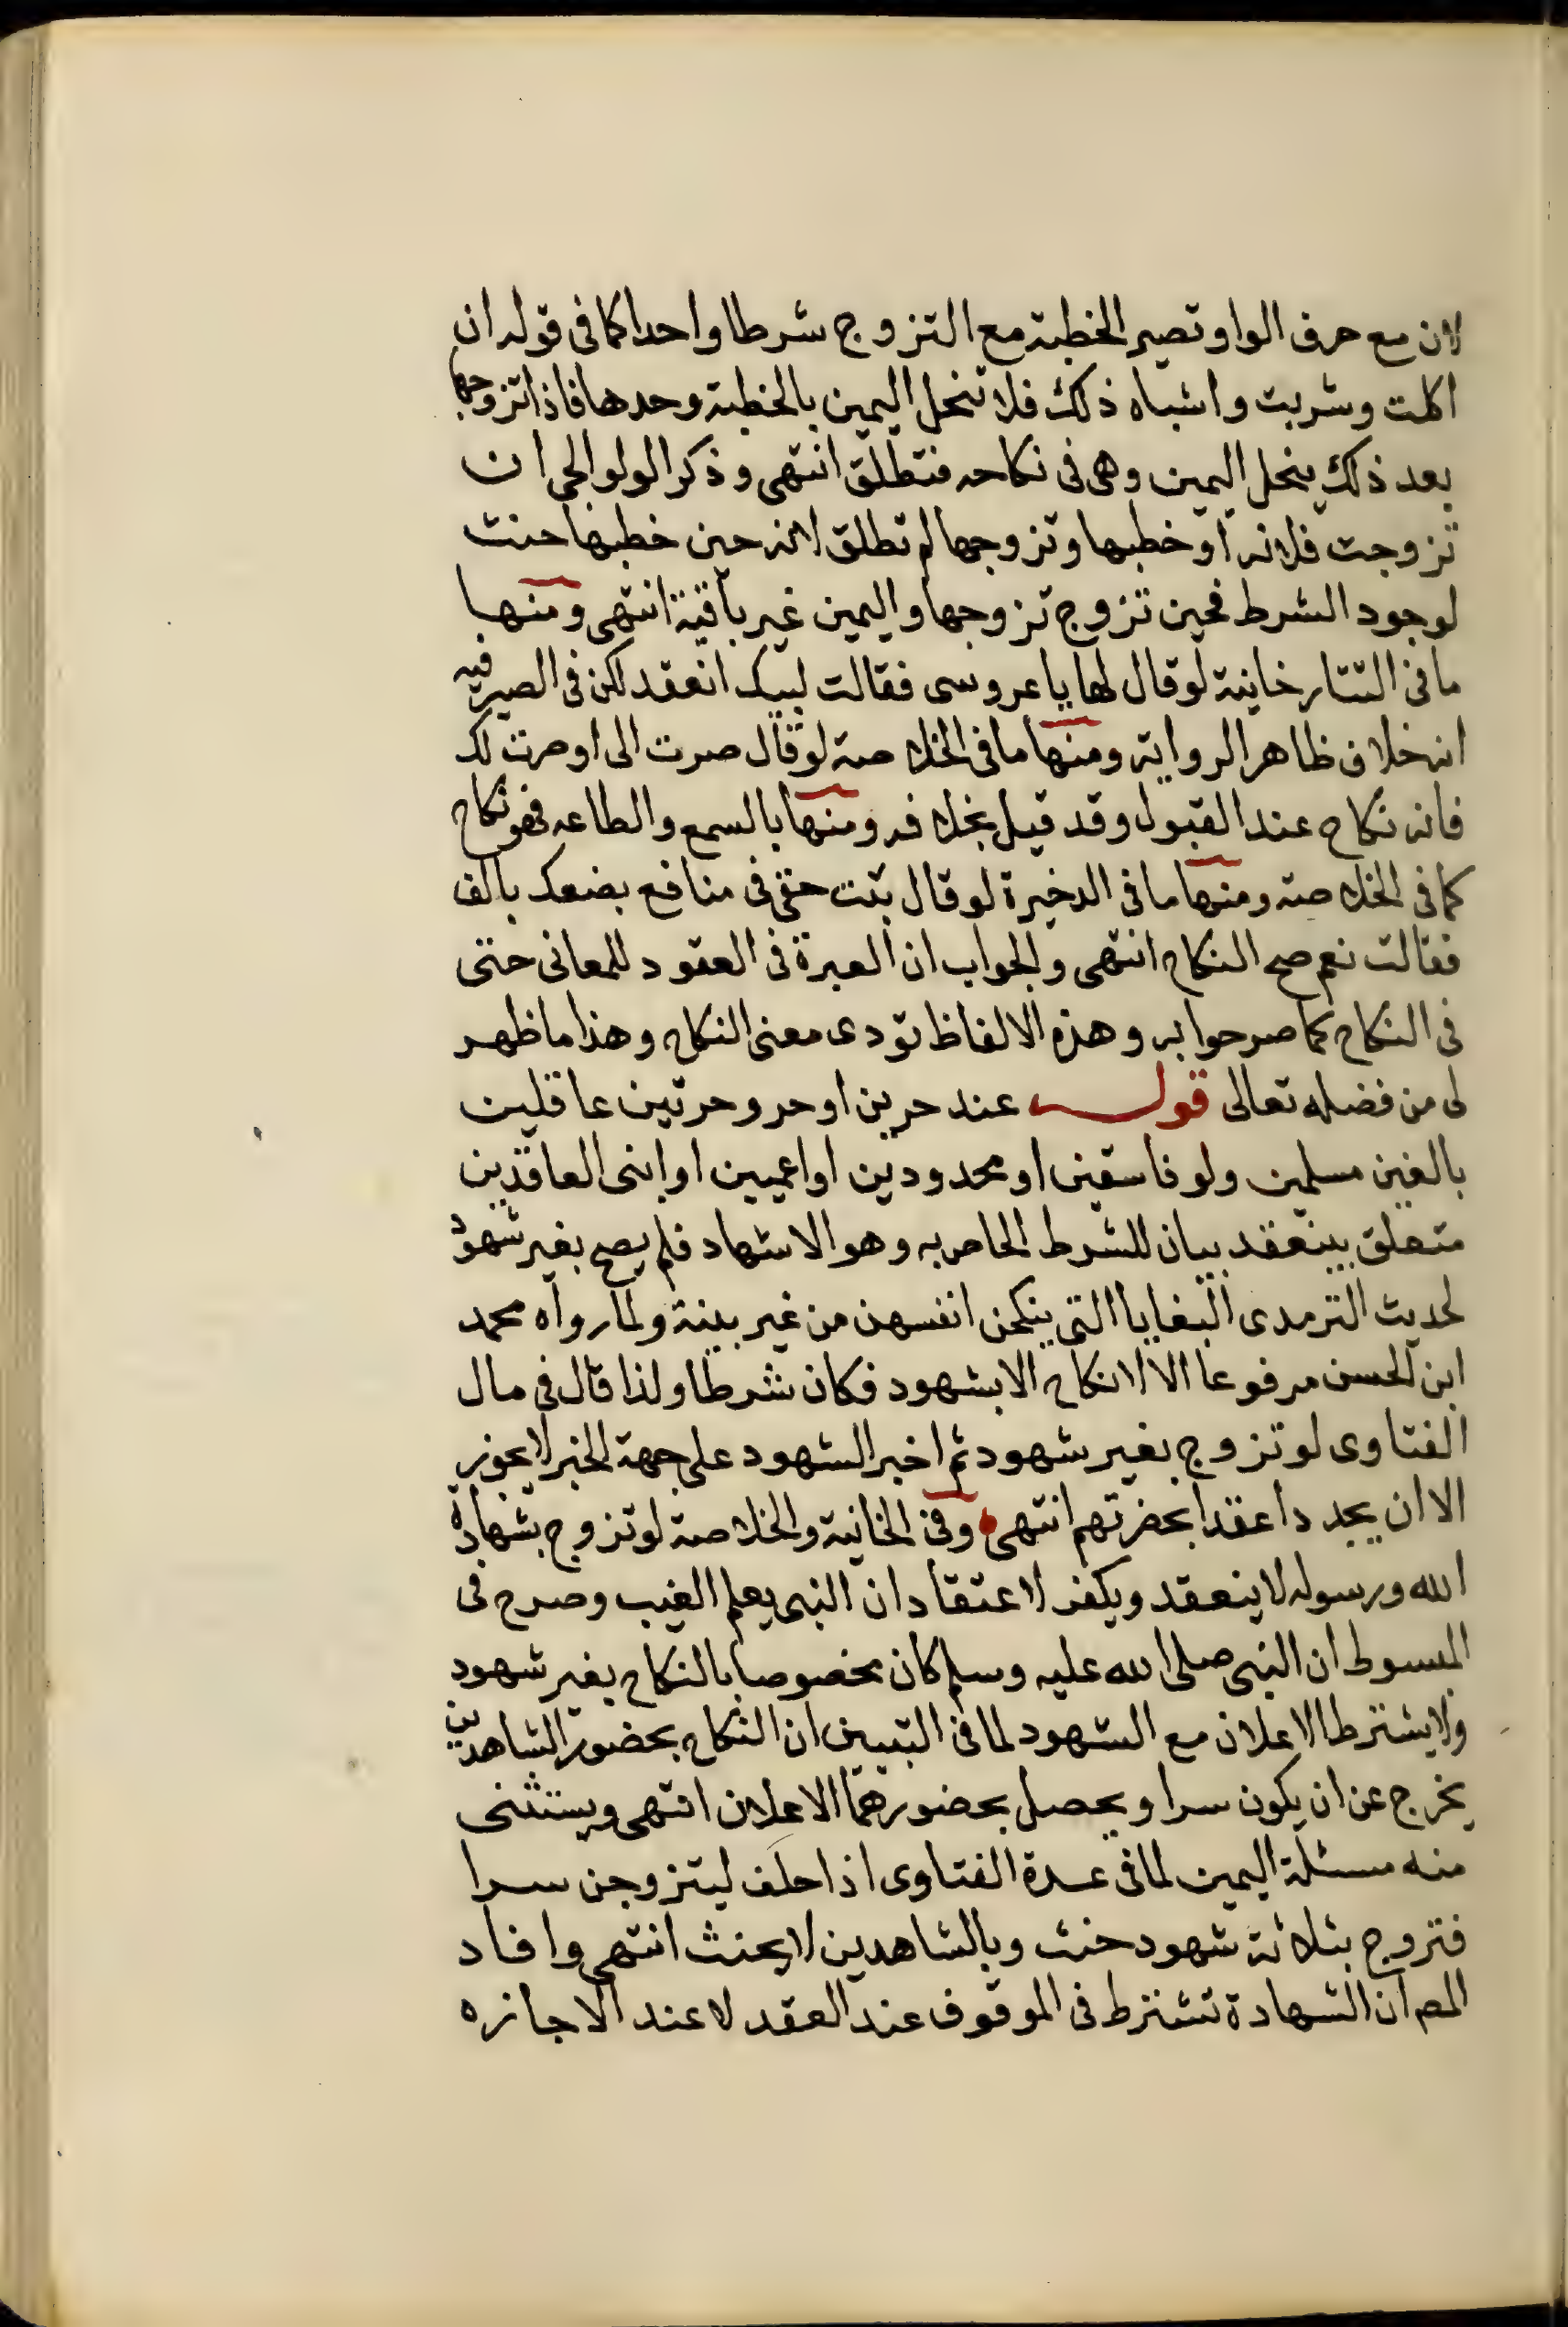 لان مع حرف الواو تصير الخطبة مع التزوج شرطا واحدا كما في قوله ان
اكلت وشربت واشباه ذلك فلا تنحل اليمين بالخطبة وحدها فاذا تزوجها
بعد ذلك ينحل اليمين وهى فى نكاحه فتطلق انتهى وذكر الولوالجي ان
تزوجت فلانة او خطبها وتزوجها لم تطلق لانه حين خطبها حنث
لوجود الشرط فحين تزوج تزوجها واليمين غير باقية انتهى ومنها
ما فى التتارخانية لو قال لها يا عروسى فقالت لبيك انعقد لكن فى الصيرفيه
انه خلاف ظاهر الرواية ومنها ما فى الخلاصة لو قال صرت الى او صرت لك
فانه نكاح عند القبول وقد قيل بخلافه ومنها بالسمع والطاعه فهو نكاح
كما فى الخلاصة ومنها ما فى الدخيرة لو قال ثبت حقى فى منافع بضعك بالف
فقالت نعم صح النكاح انتهى والجواب ان العبرة فى العقود للمعانى حتى
فى النكاح كما صرحوا به وهذه الالفاظ تؤدى معنى النكاح وهذا ما ظهر
لى من فضله تعالى قوله عند حرين او حر وحرتين عاقلين
بالغين مسلمين ولو فاسقين او محدودين او اعميين او ابنى العاقدين
متعلق بينعقد بيان للشرط الخاص به وهو الاشهاد فلم يصح بغير شهود
لحديث الترمدى البغايا التى ينكحن انفسهن من غير بينة ولما رواه محمد
ابن الحسن مرفوعا الا لا نكاح الا بشهود فكان شرطا ولذا قال فى مال
الفتاوى لو تزوج بغير شهود ثم اخبر الشهود على جهة الخبر لا يجوز
الا ان يجددا عقدا بحضرتهم انتهى وفى الخانية والخلاصة لو تزوج بشهادة
الله ورسوله لا ينعقد ويكفر لاعتقاد ان النبى يعلم الغيب وصرح فى
المبسوط ان النبى صلى الله عليه وسلم كان مخصوصا بالنكاح بغير شهود
ولا يشترط الاعلان مع الشهود لما فى التبيين ان النكاح بحضور الشاهدين
يخرج عن ان يكون سرا ويحصل بحضورهما الاعلان انتهى ويستثنى
منه مسئلة اليمين لما فى عدة الفتاوى اذا حلف ليتزوجن سرا
فتزوج بثلاثة شهود حنث وبالشاهدين لا يحنث انتهى وافاد
المصم ان الشهادة تشترط فى الموقوف عند العقد لا عند الاجازه